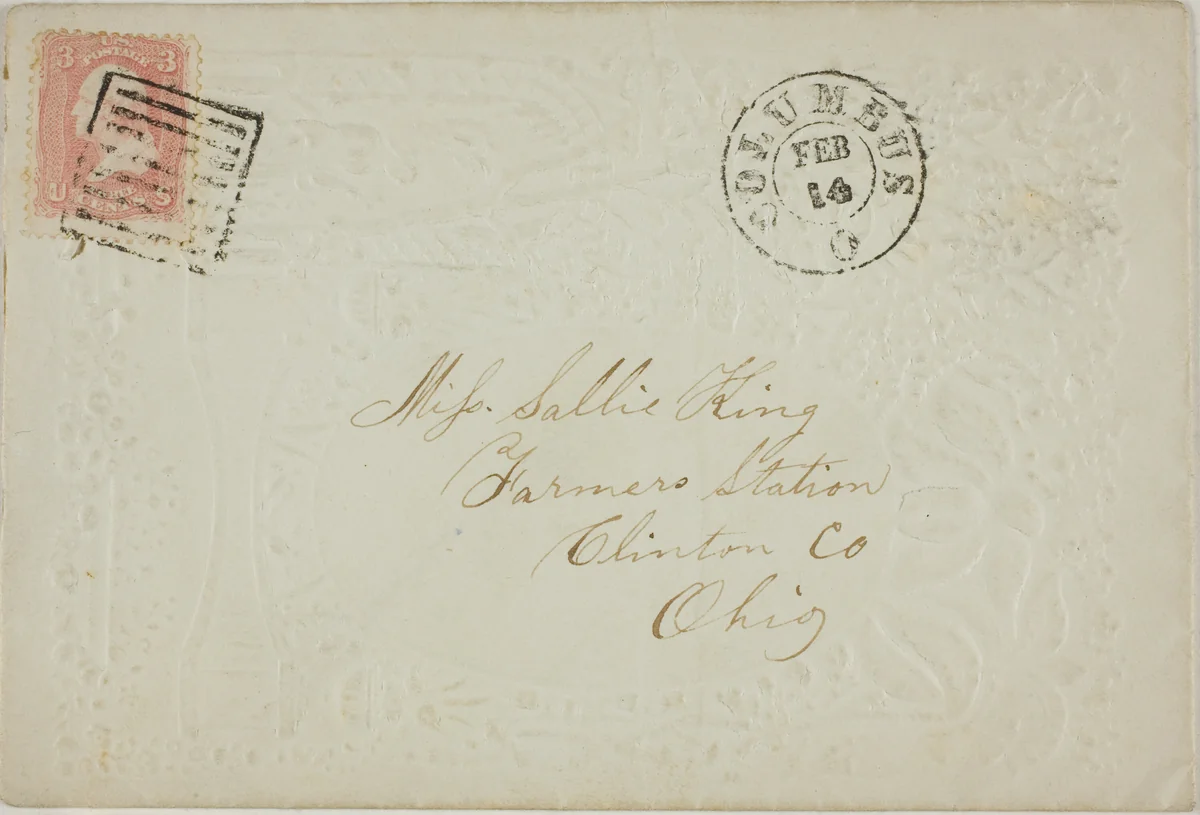 3 U.S. 3
POSTAGE
U S
CENTS
COLUMBUS
FEB
14
O
Miss. Sallie King
Farmers Station
Clinton Co
Ohio